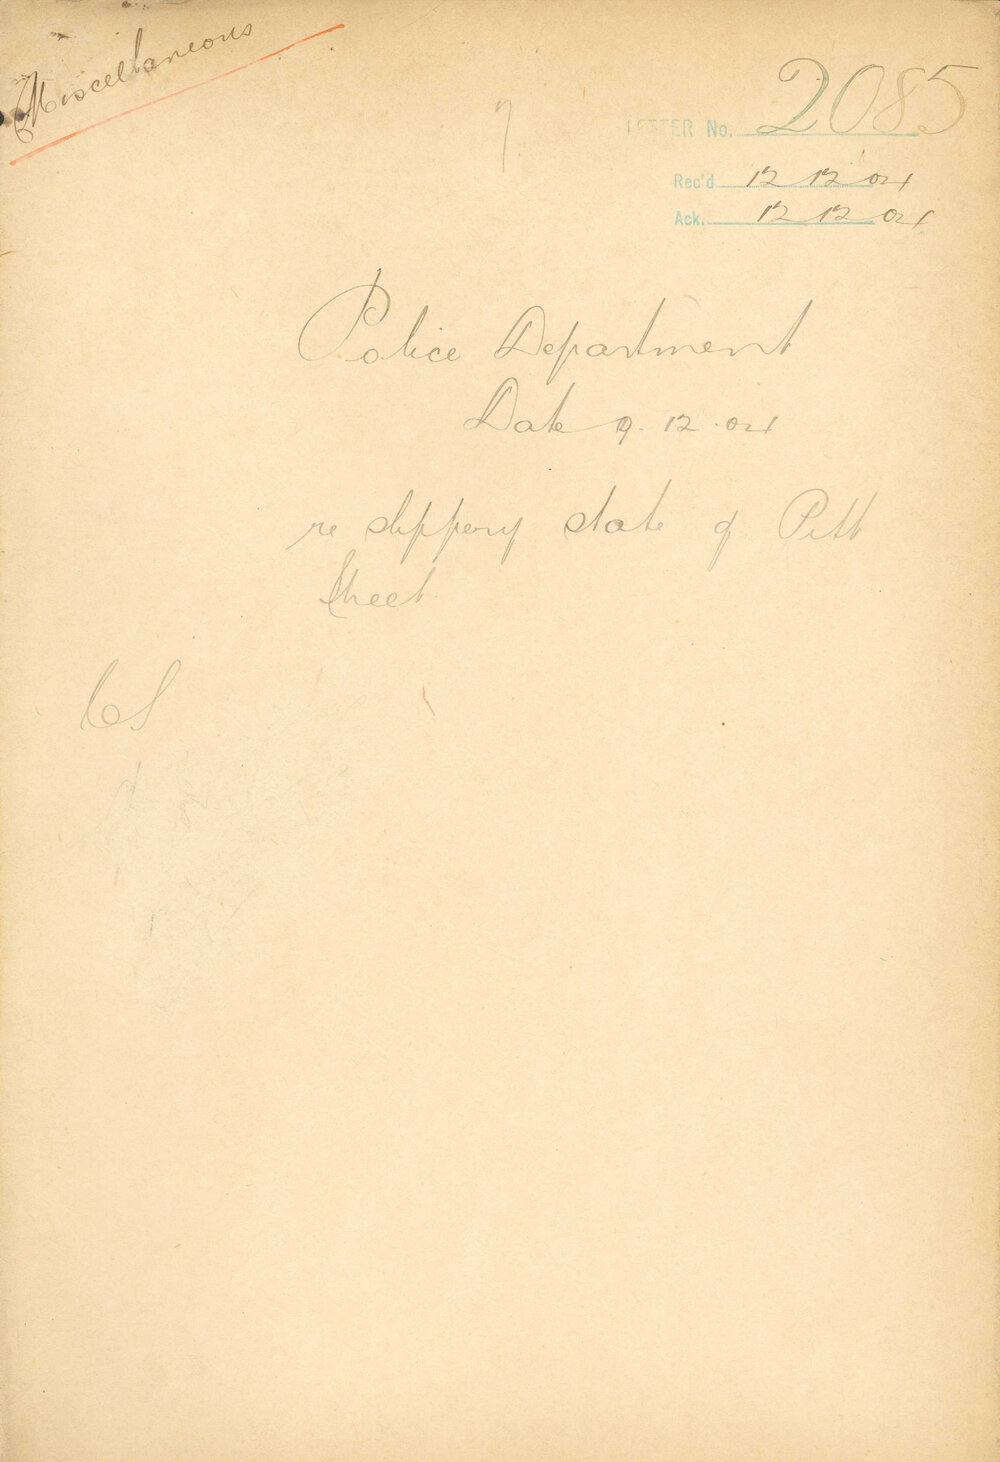 Miscellaneous
LETTER No. 2085
Rec'd 12 12 04
Ack. 12 12 04
Police Department
Date 9. 12. 04
re slippery state of Pitt
Street.